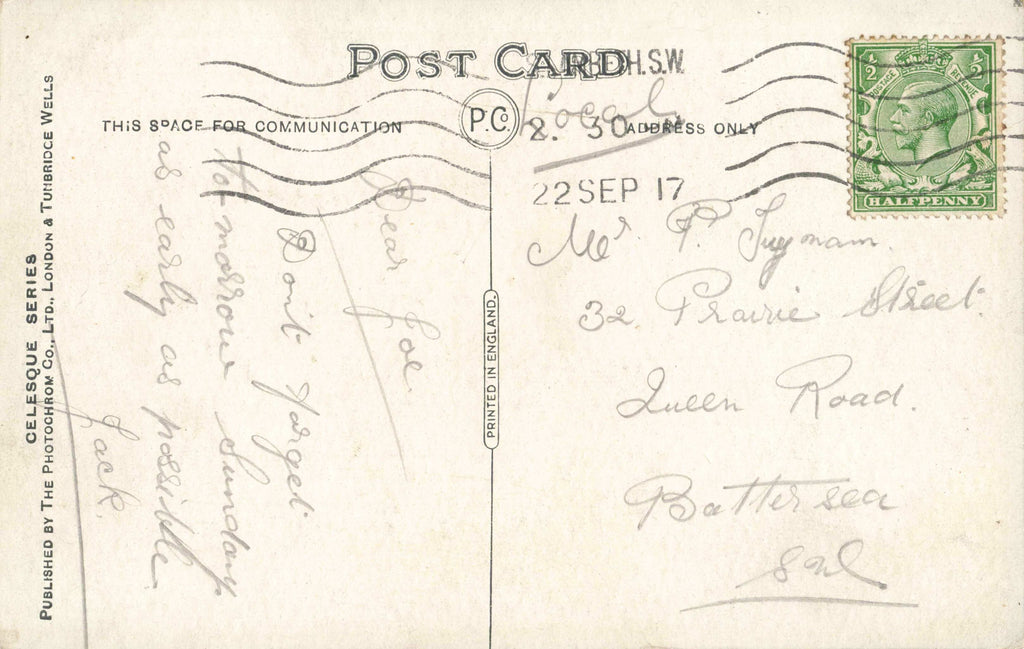 POST CARD
THIS SPACE FOR COMMUNICATION
P.Co
ADDRESS ONLY
H.S.W.
Local
2. 30
22 SEP 17
1/2 1/2
POSTAGE REVENUE
HALFPENNY
Dear Joe
Don't forget
to-morrow Sunday
as early as possible
Jack.
Mr. P.
32 Prairie Street
Queen Road.
Battersea
S.W.
PRINTED IN ENGLAND.
CELESQUE SERIES
PUBLISHED BY THE PHOTOCHROM CO., LTD., LONDON & TUNBRIDGE WELLS